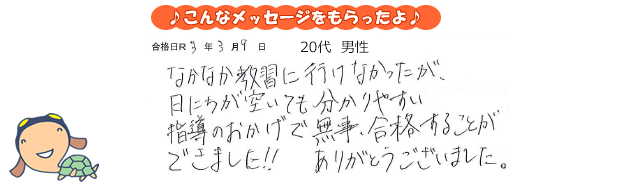 ♪こんなメッセージをもらったよ♪
合格日R 3 年 3 月 9 日 20代 男性
なかなか教習に行けなかったが、
日にちが空いても分かりやすい
指導のおかげで無事、合格することが
できました!! ありがとうございました。